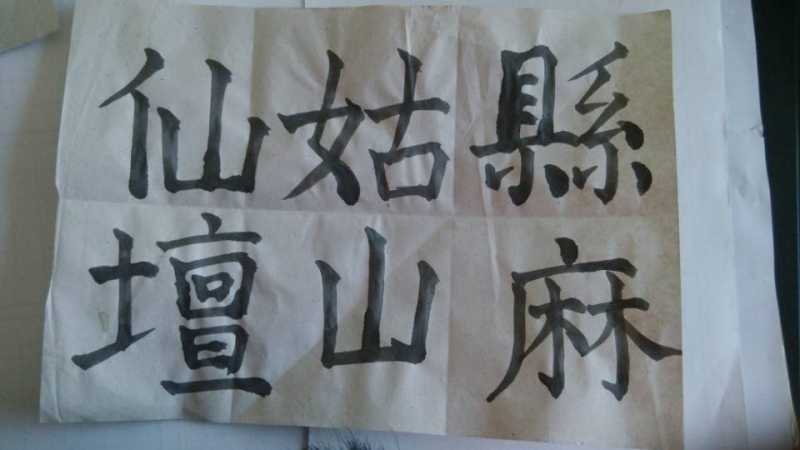 縣麻
姑山
仙壇